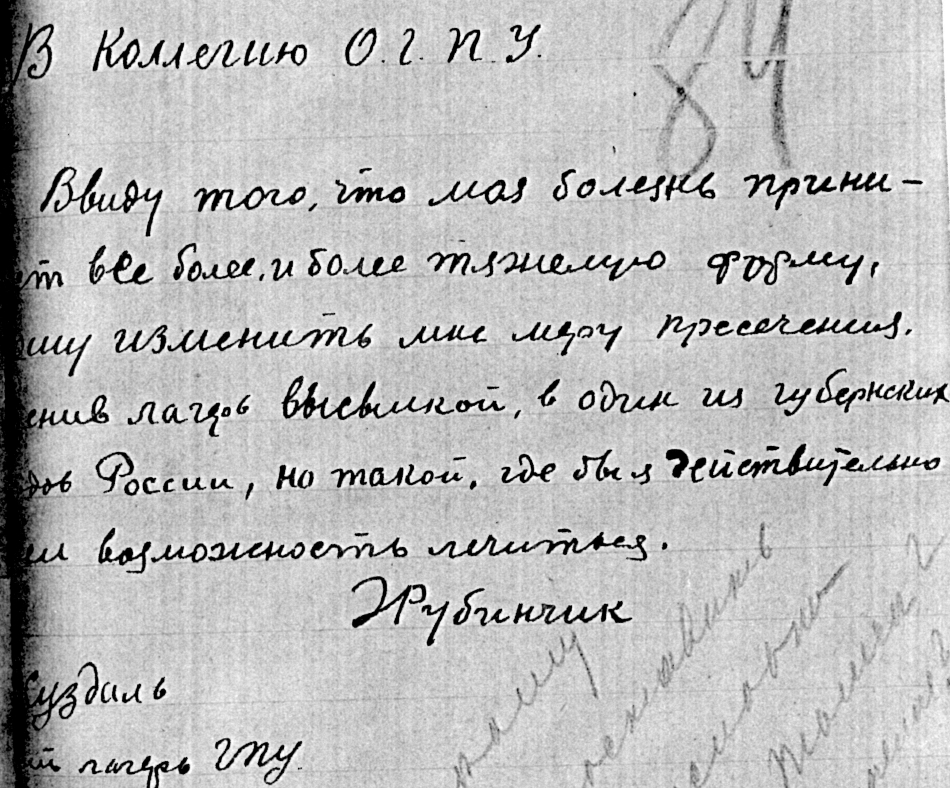 В Коллегию О.Г.П.У.
84
Ввиду того, что моя болезнь прини-
ет все более, и более тяжелую форму,
ошу изменить мне меру пресечения.
енив лагерь высылкой, в один из губернских
дов России, но такой, где бы я действительно
ел возможность лечиться.
ЭРубинчик
Суздаль
ий лагерь ГПУ